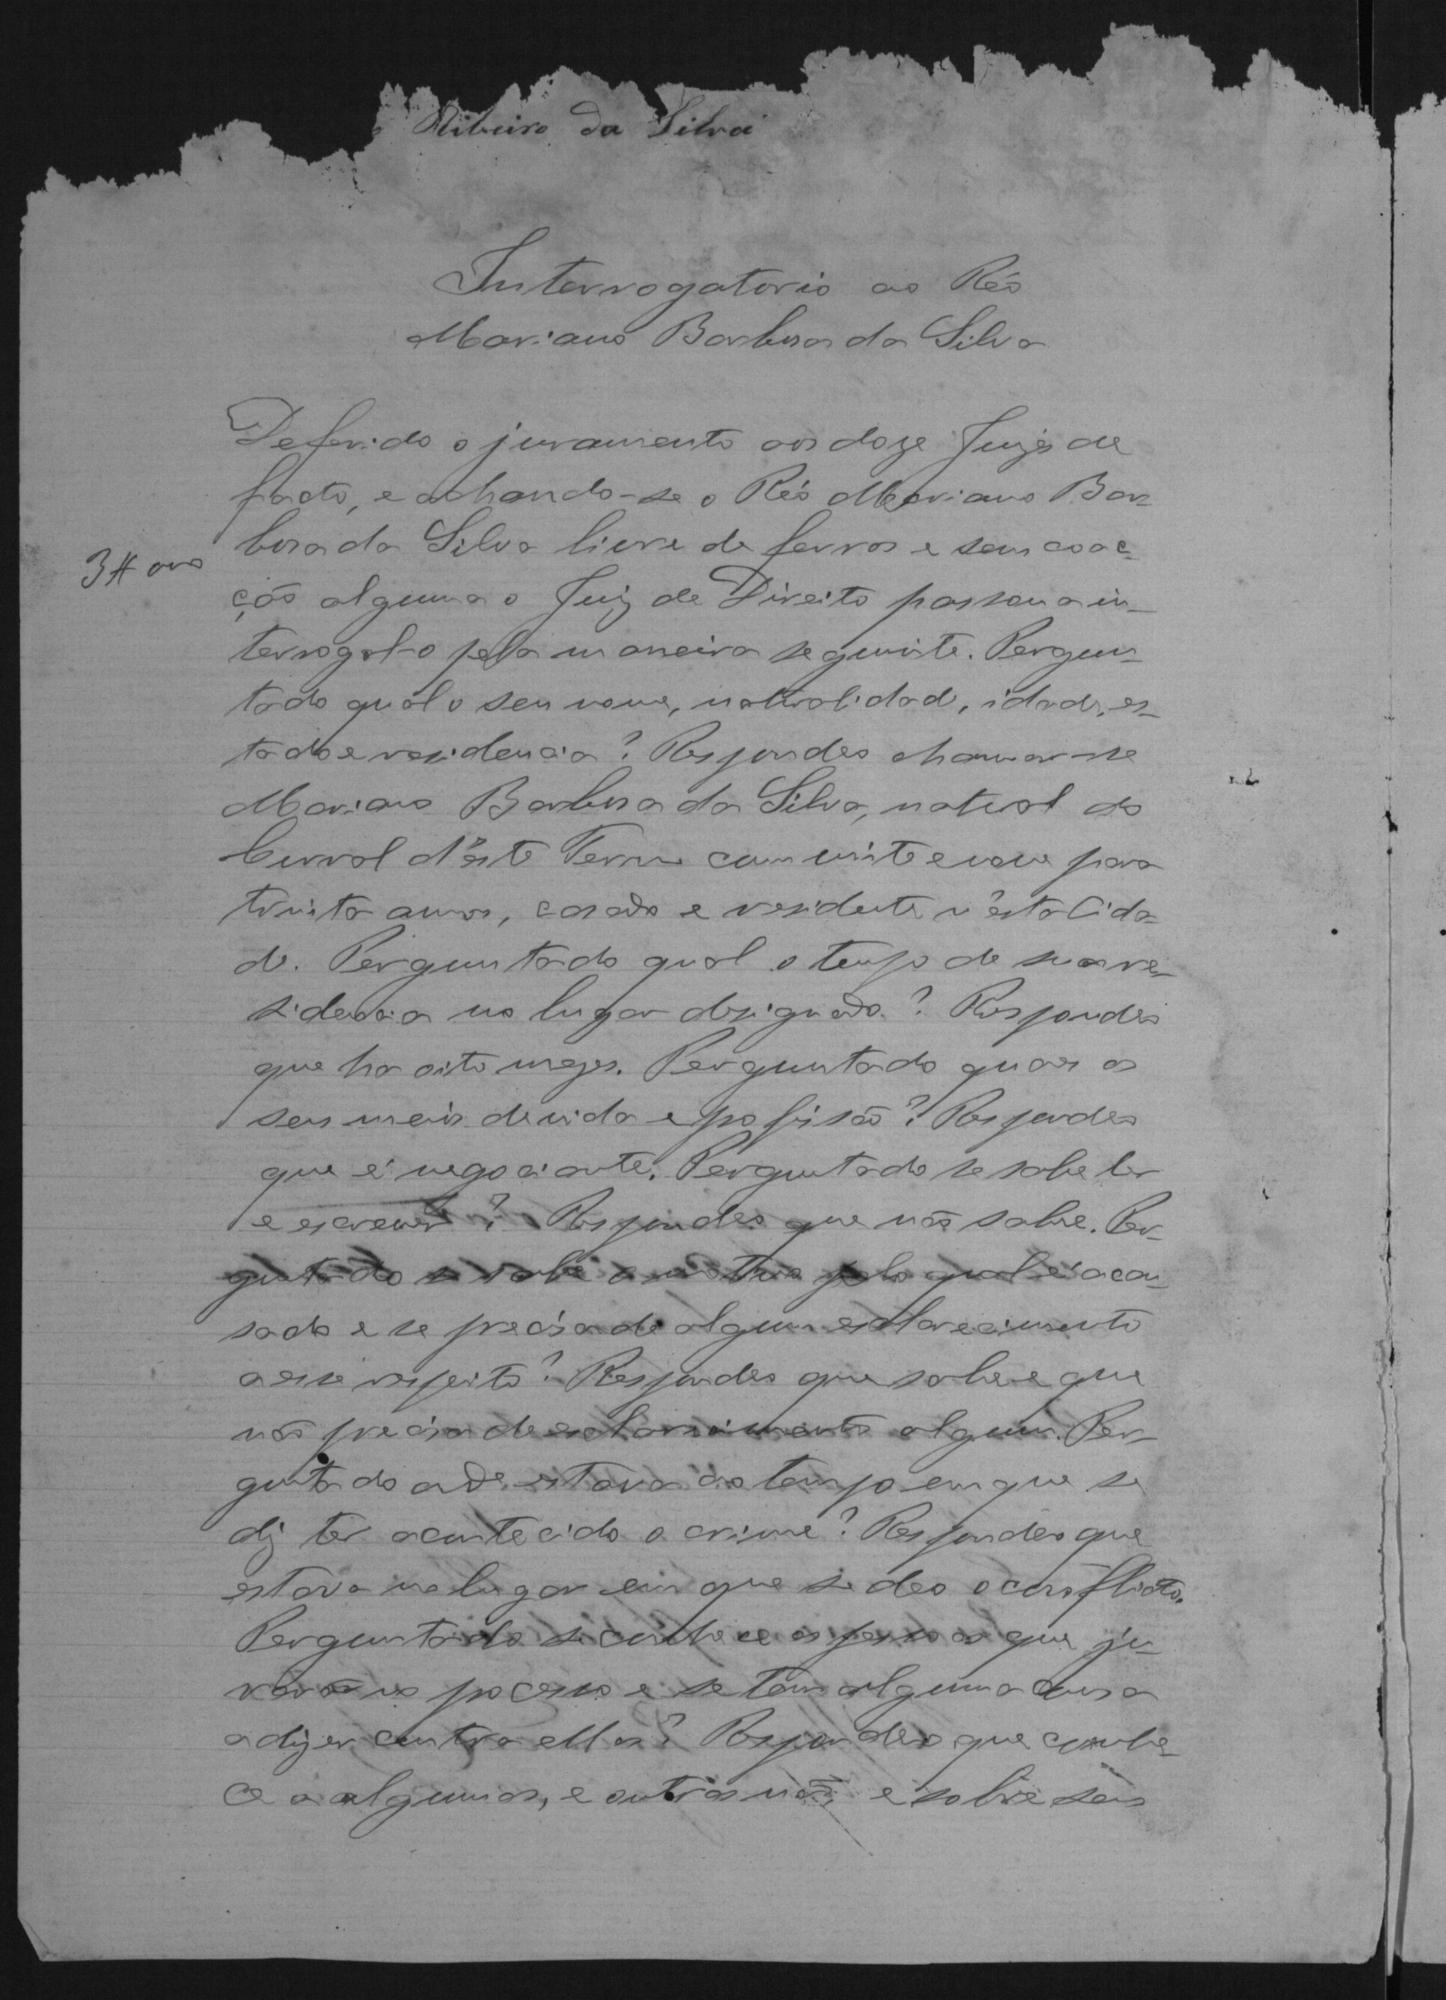 Ribeiro da Silva
Interrogatorio ao Réo
Mariano Barbosa da Silva
Deferido o juramento aos doze Juizes de
facto, e achando-se o Réo Mariano Bar-
bosa da Silva livre de ferros e sem coac-
ção alguma o Juiz de Direito passou a in-
terrogal-o pela maneira seguinte. Pergun-
tado qual o seu nome, naturalidad, idade, es-
tado e residencia? Respondeo chamar-se
Mariano Barbosa da Silva, natural do
Curral d'este Termo com vinte e nove para
trinta annos, casado e residente n'esta Cida-
de. Perguntado qual o tempo de sua re-
sidencia no lugar designado? Respondeo
que ha oito mezes. Perguntado quaes os
seus meios de vida e profissão? Respondeo
que é negociante. Perguntado se sabe ler
e escrever? Respondeo que não sabe. Per-
guntado se sabe o motivo pelo qual é accu-
sado e se precisa de algum esclarecimento
a esse respeito? Respondeo que sabe e que
não precisa de esclarecimento algum. Per-
guntado onde estava ao tempo em que se
diz ter acontecido o crime? Respondeo que
estava no lugar em que se deo o conflicto.
Perguntado se conhece as pessoas que ju-
rarão no processo e se tem alguma cousa
a dizer contra ellas? Respondeo que conhe-
ce a algumas, e outras não, e sobre seus